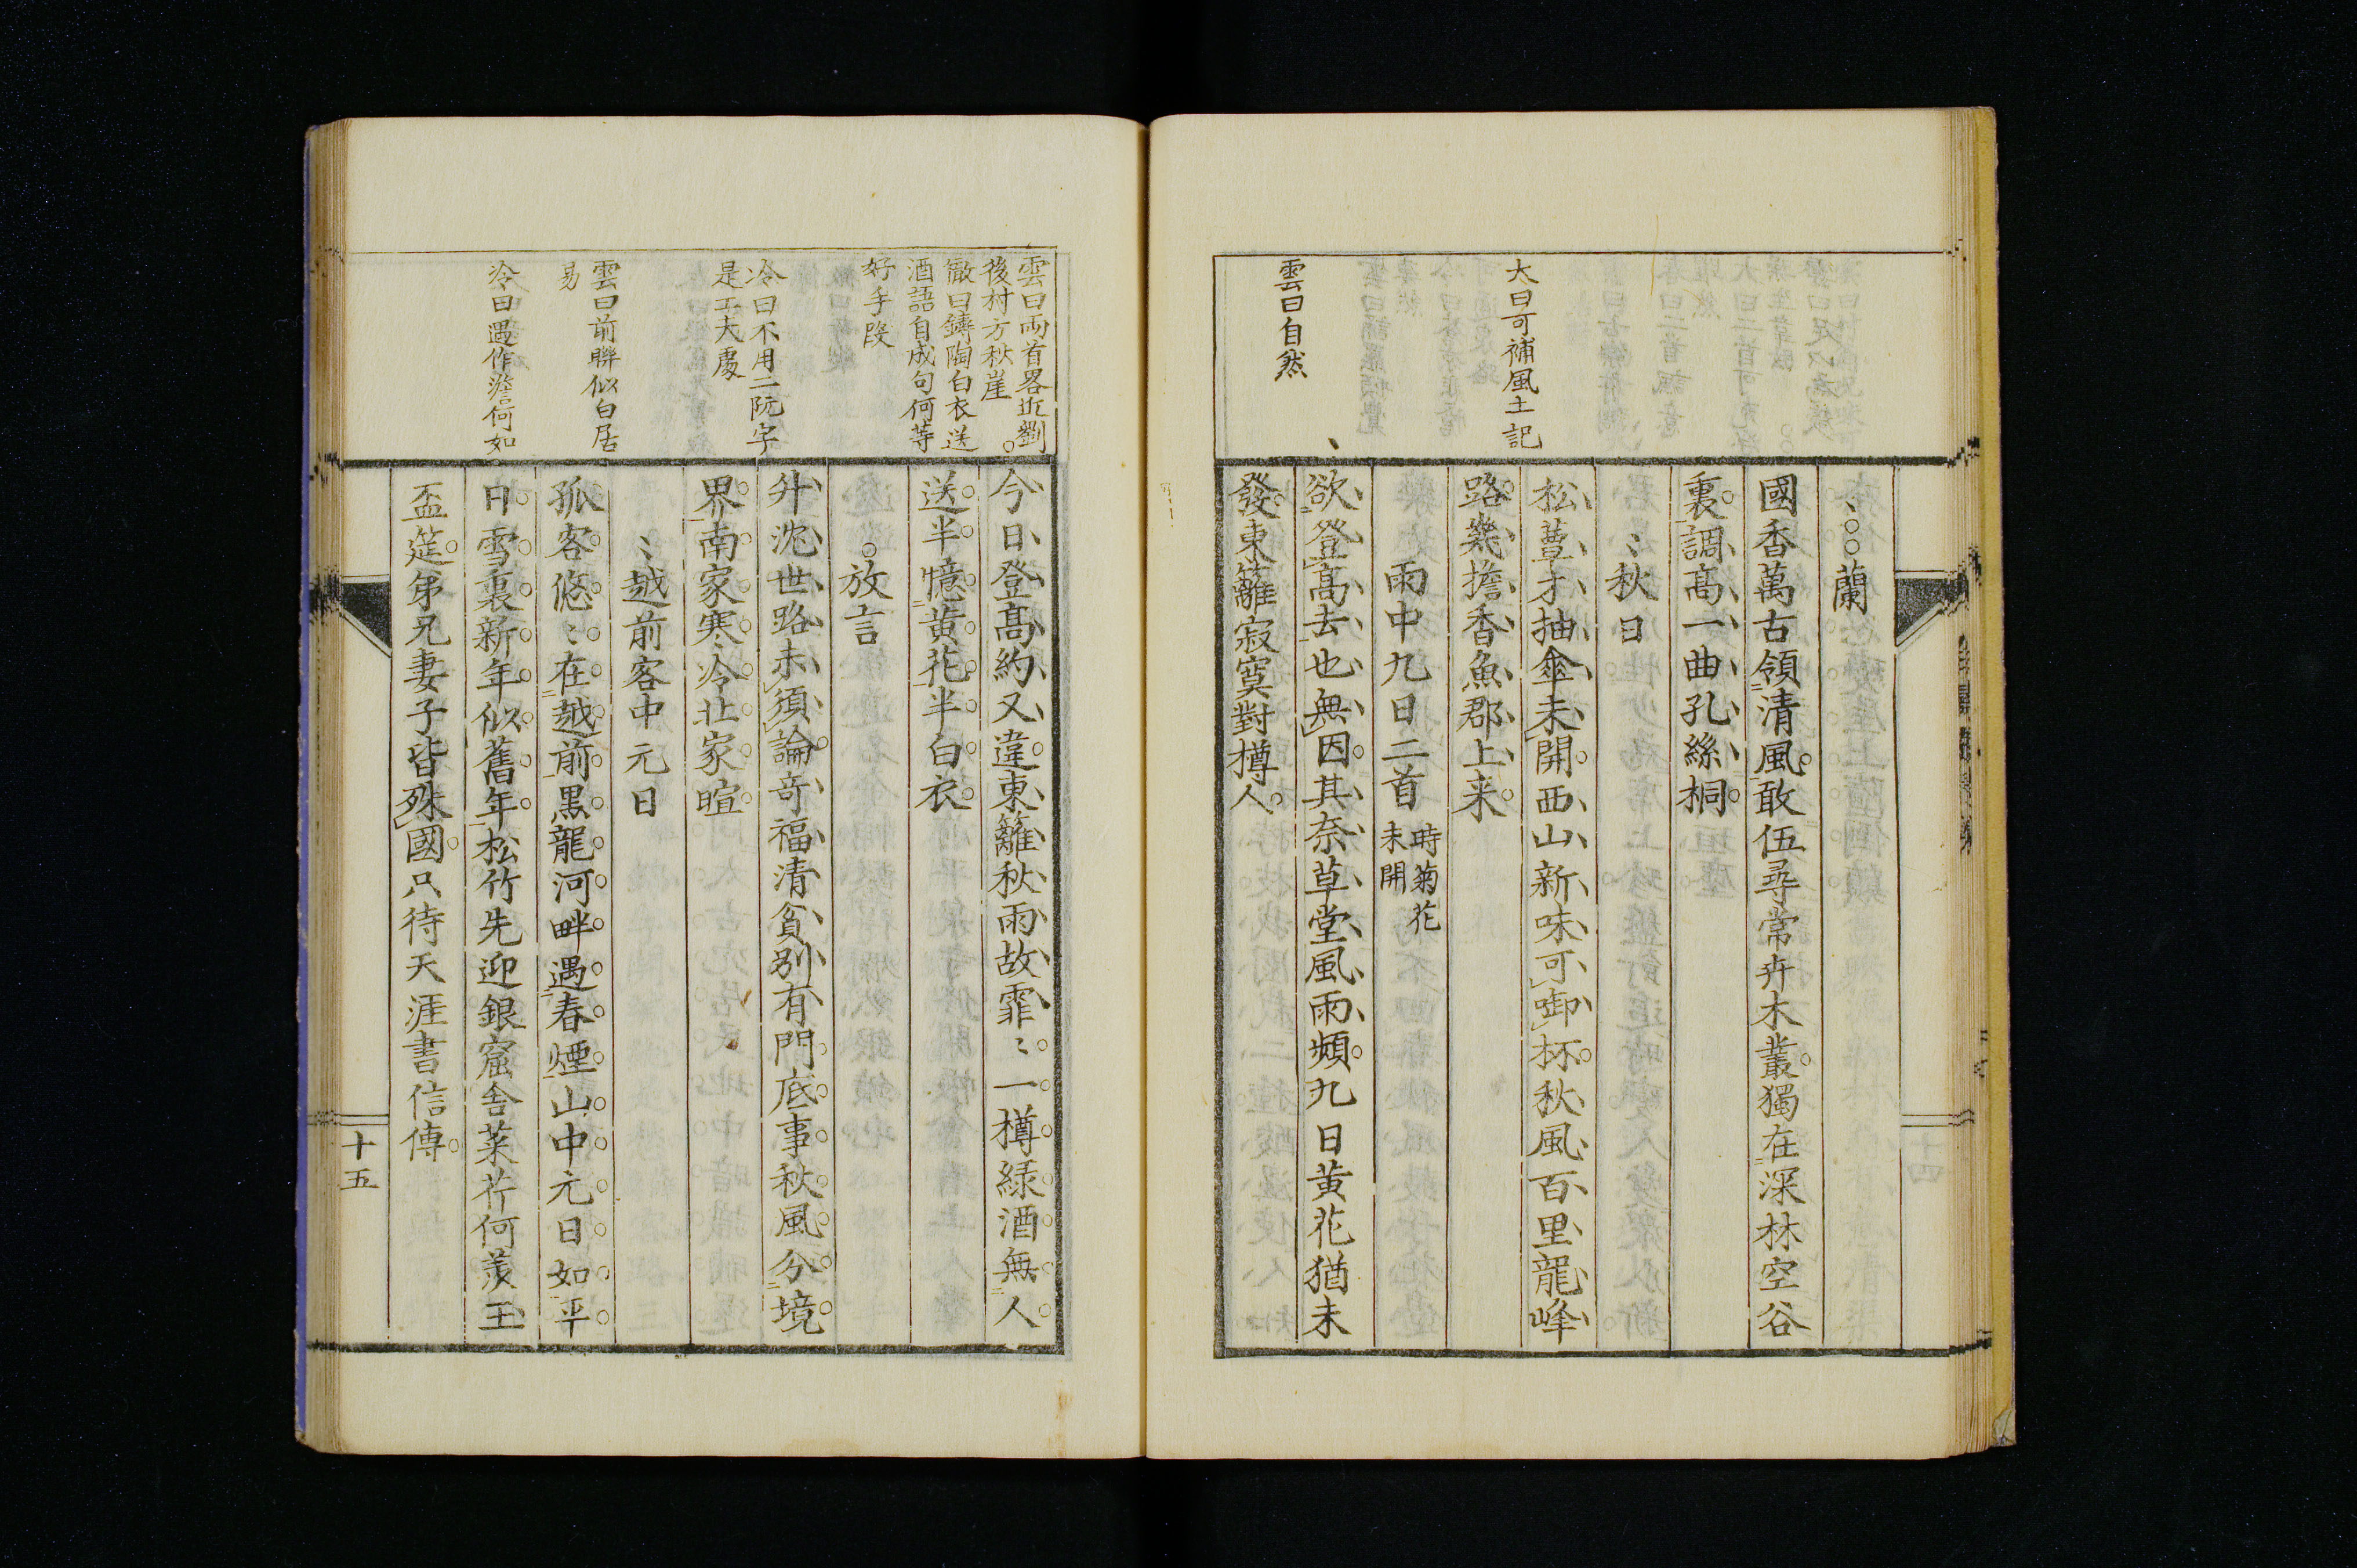 大曰可補風土記
雲曰自然
蘭
國香萬古領清風敢伍尋常卉木叢獨在深林空谷
裏調高一曲孔絲桐
秋日
松蕈才抽傘未開西山新味可啣杯秋風百里龍峰
路幾擔香魚郡上来
雨中九日二首 時菊花
未開
欲登高去也無因其奈草堂風雨頻九日黄花猶未
發東籬寂寞對樽人
十四
雲曰両首畧近劉
後村方秋崖
徹曰鑄陶白衣送
酒語自成句何等
好手段
冷曰不用二阮字
是工夫處
雲曰前聯似白居
易
冷曰遇作澹何如
今日登高約又違東籬秋雨故霏〻一樽緑酒無人
送半憶黄花半白衣
放言
升沈世路未須論奇福清貧別有門底事秋風分境
界南家寒冷北家暄
越前客中元日
孤客悠〻在越前黒龍河畔遇春煙山中元日如平
日雪裏新年似舊年松竹先迎銀窟舎菜芹何羨玉
盃筵弟兄妻子皆殊國只待天涯書信傳
十五